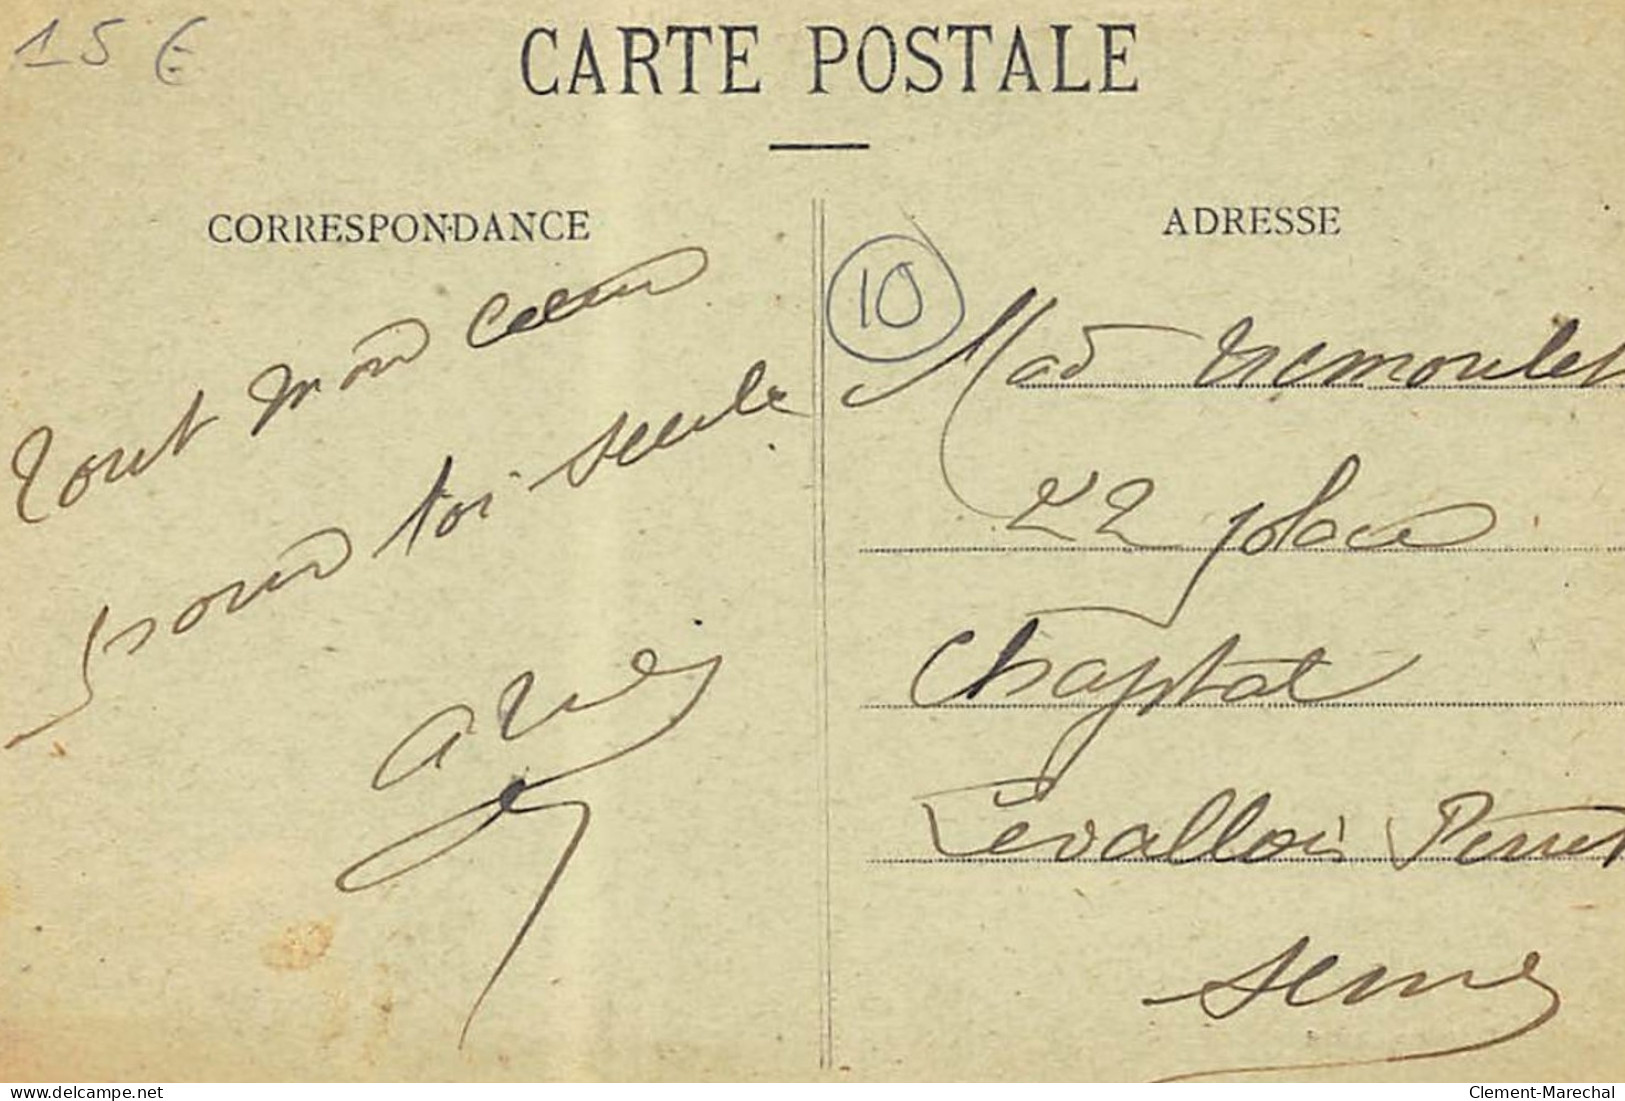 15 €
CARTE POSTALE
CORRESPONDANCE
tout mon coeur
pour toi seule
ADRESSE
10
Mad Tremoulet
22 place
Chaptal
Levallois Perret
Seine
delcampe.net
Clement-Marechal